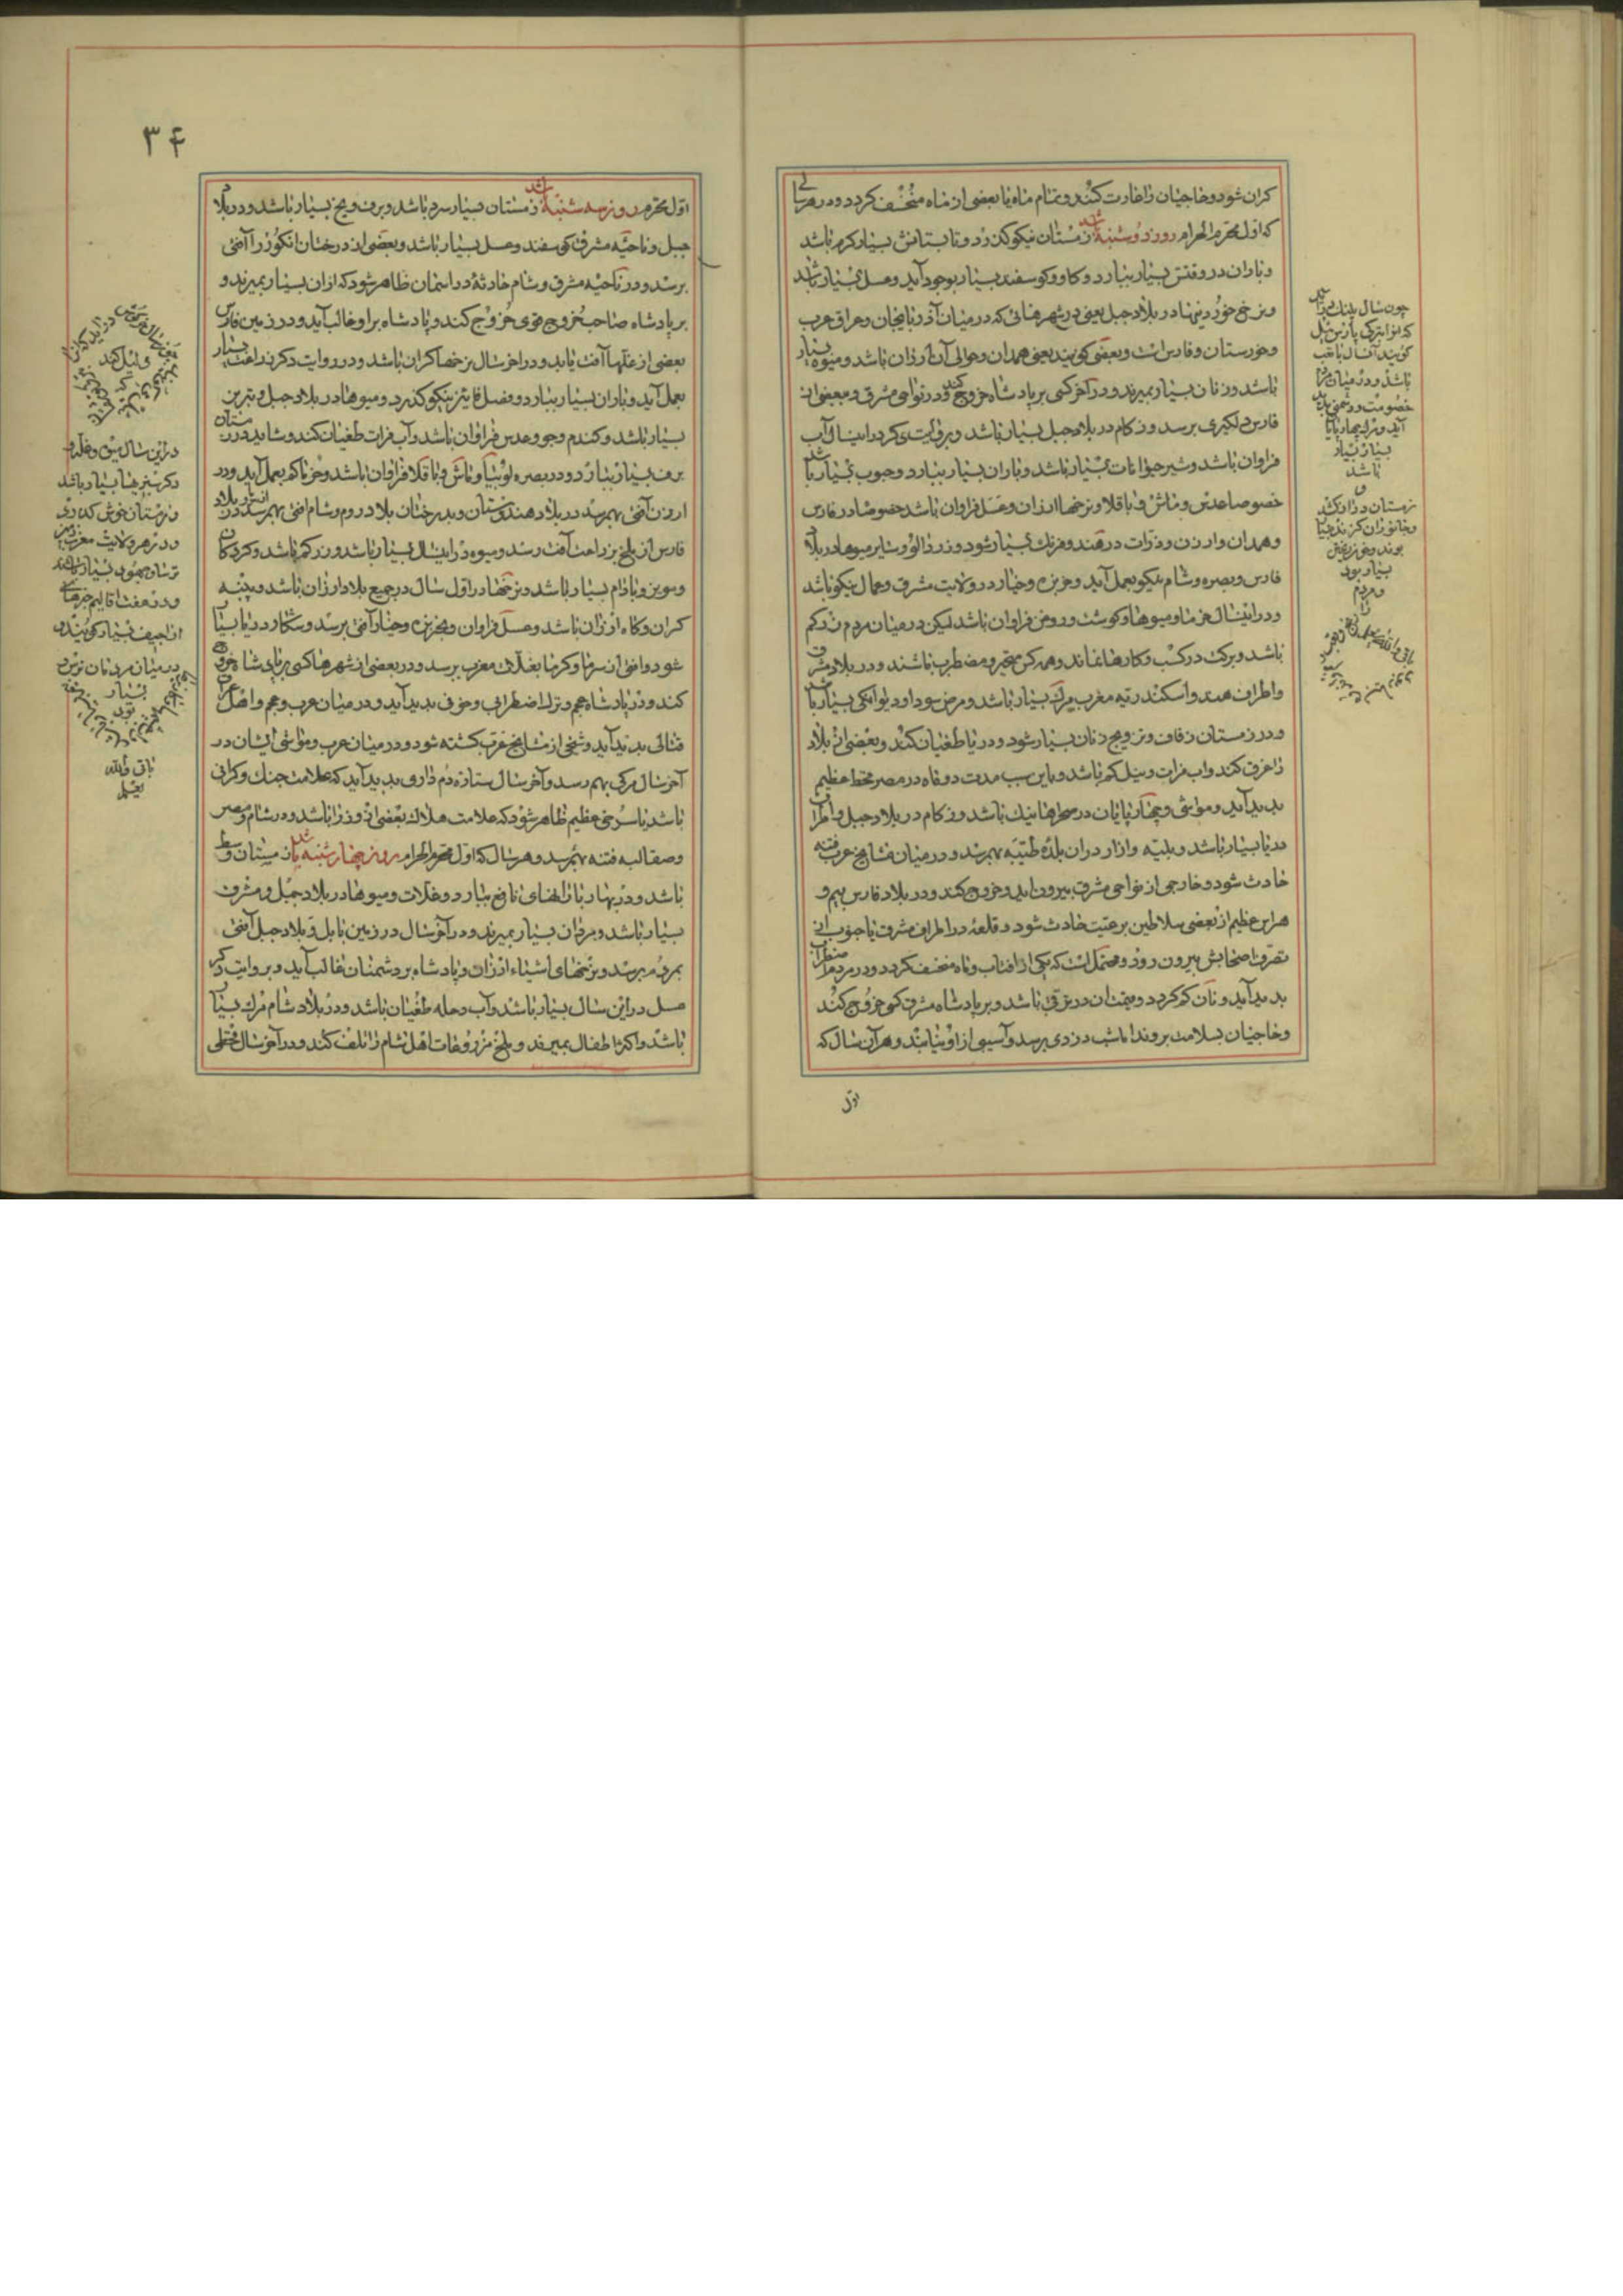 کران شود و حاجیان را غارت کنند و تمام ماه یا بعضی از ماه منخسف کردد و در هر سالی
که اول محرم الحرام روز دوشنبه باشد زمستان نیکو کذرد و تابستانش بسیار کرم باشد
و باران در وقتش بسیار ببارد و کاو و کوسفند بسیار بوجود آید و عسل بسیار باشد
و نرخ خوردنیها در بلاد جبل یعنی در شهرهائی که در میان آذربایجان و عراق عرب
و خوزستان و فارس است و بعضی کویند یعنی همدان و حوالی آن ارزان باشد و میوه بسیار
باشد و زنان بسیار بمیرند و در آخر کسی بر پادشاه خروج کند و در نواحی مشرق و بعضی از
فارس دلکیری برسد و زکام در بلاد جبل بسیار باشد و بروایت دیکر در این سال آب
فراوان باشد و شیر حیوانات بسیار باشد و باران بسیار ببارد و حبوب بسیار باشد
خصوصا عدس و ماش و باقلا و نرخها ارزان و عسل فراوان باشد خصوصا در فارس
و همدان و ارزن و ذرات در هند و فرنک بسیار شود و زردآلو و سایر میوها در بلاد
فارس و بصره و شام نیکو بعمل آید و خربزه و خیار در ولایت مشرق و شمال نیکو باشد
و در این سال خرما و میوها و کوشت و روغن فراوان باشد لیکن در میان مردم زر کم
باشد و برکت در کسب و کارها نماند و همه کس متحیر و مضطرب باشند و در بلاد مشرق
و اطراف هند و اسکندریه مغرب مرک بسیار باشد و مرض سودا و دیوانکی بسیار باشد
و در زمستان زفاف و تزویج زنان بسیار شود و دریا طغیان کند و بعضی از بلاد
را غرق کند و آب فرات و نیل کم باشد و باین سبب مدت دو ماه در مصر قحط عظیم
پدید آید و مواشی و چهارپایان در صحراها نیک باشد و زکام در بلاد جبل و اطراف
دریا بسیار باشد و بلیه و آزار در آن بلده طیبه بهم رسد و در میان مشایخ عرب فتنه
حادث شود و خارجی از نواحی مشرق بیرون آید و خروج کند و در بلاد فارس بیم و
هراس عظیم از بعضی سلاطین بر رعیت حادث شود و قلعهٔ در اطراف مشرق یا جنوب از
تصرف اصحابش بیرون رود و محتمل است که یکی از افتاب و ماه منخسف کردد و در مردم اضطراب
پدید آید و نان کم کردد و بخت آن در ترقی باشد و بر پادشاه مشرق کسی خروج کند
و حاجیان بسلامت بروند اما شب دزدی برسد و آسیبی از او نیابند و هر آن سال که
اول
چون سال پلنک درآید
که انرا بترکی بارس ئیل
کویند آن سال با تعب
باشد و در میان مردم
خصومت و دشمنی پدید
آید و مرک چهارپایان
بسیار بسیار
باشد
و
زمستان دراز کشد
و جانوران کزنده بسیار
بوند و خون ریختن
بسیار بود
مردم
را
۳۴
اول محرم روز سه شنبه باشد زمستان بسیار سرد باشد و برف و یخ بسیار باشد و در بلاد
جبل و ناحیه مشرق کوسفند و عسل بسیار باشد و بعضی از درختان انکور را آفتی
برسد و در ناحیه مشرق و شام حادثهٔ در آسمان ظاهر شود که از آن بسیار بمیرند و
بر پادشاه صاحب خروج قوی خروج کند و پادشاه بر او غالب آید و در زمین فارس
بعضی از غلها آفت یابد و در آخر سال نرخها کران باشد و در روایت دیکر زراعت بسیار
بعمل آید و باران بسیار ببارد و فصل پائیز نیکو کذرد و میوها در بلاد جبل و نبرین
بسیار باشد و کندم و جو و عدس فراوان باشد و آب فرات طغیان کند و شاید در زمستان
برف بسیار ببارد و در بصره لوبیا و ماش و باقلا فراوان باشد و خرما کم بعمل آید و در
ارزن آفتی بهم رسد در بلاد هندوستان و بدرختان بلاد روم و شام آفتی بهم رسد و در بلاد
فارس از ملخ بزراعت آفت رسد و میوه در این سال بسیار باشد و زر کم باشد و کردکان
و مویز و بادام بسیار باشد و نرخها در اول سال در جمیع بلاد ارزان باشد و پنبه
کران و کاه ارزان باشد و عسل فراوان و بخربزه و خیار آفتی برسد و شکار دریا بسیار
شود و آفتی از سرما و کرما بغلات مغرب برسد و در بعضی از شهرها کسی بر پادشاه خروج
کند و در پادشاه عجم و ترک اضطرابی و خوف پدید آید و در میان عرب و عجم و اهل عراق
قتالی پدید آید و شخصی از مشایخ عرب کشته شود و در میان عرب و مواشی ایشان در
آخر سال مرکی بهم رسد و آخر سال ستارهٔ دم داری پدید آید که علامت جنک و کرانی
باشد یا سرخی عظیم ظاهر شود که علامت هلاک بعضی از وزرا باشد و در شام و مصر
و صقالبه فتنه بهم رسد و هر سال که اول محرم الحرام روز چهارشنبه باشد زمستان وسط
باشد و در بهار بارانهای نافع ببارد و غلات و میوها در بلاد جبل و مشرق
بسیار باشد و مردان بسیار بمیرند و در آخر سال در زمین بابل و بلاد جبل آفتی
بمردم برسد و نرخهای اشیاء ارزان و پادشاه بر دشمنان غالب آید و بروایت دیکر
عسل در این سال بسیار باشد و آب دجله طغیان باشد و در بلاد شام مرک بسیار
باشد و اکثر اطفال بمیرند و ملخ مزروعات اهل شام را تلف کند و در آخر سال قحطی
در این سال میوه و غله و
دیکر سبزیها بسیار باشد
و زمستان خوش کذرد
و در هر ولایت مغرب
و در هفت اقالیم خبرهای
اراجیف بسیار کویند و
در میان مردمان ترس
بسیار
بود
باقی والله
یعلم